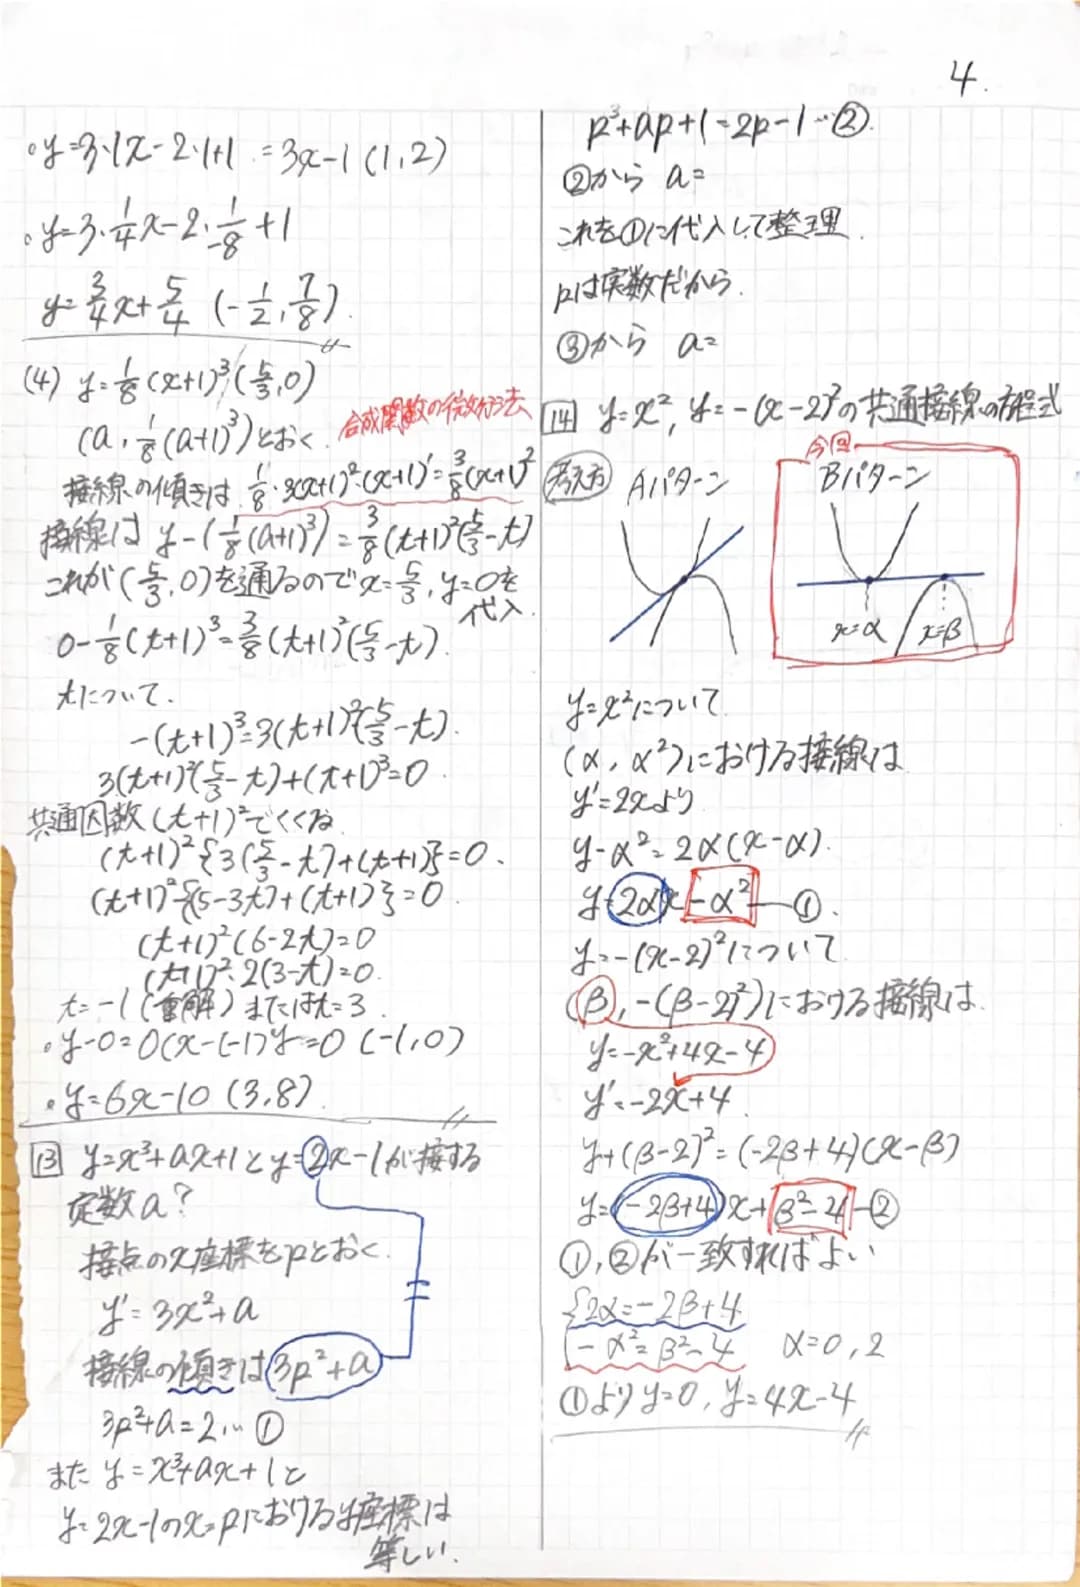 4.
・y=3・1x-2・1+1 =3x-1 (1,2)
・y=3・1/4x-2・1/-8+1
y=3/4x+5/4 (-1/2,7/8)
(4) y=1/8(x+1)³(5/3,0)
(a,1/8(a+1)³)とおく
合成関数の微分法
接線の傾きは 1/8・3(x+1)²・(x+1)'=3/8(x+1)²
接線は y-(1/8(a+1)³)=3/8(t+1)²(5/3-t)
これが(5/3,0)を通るのでx=5/3,y=0を
代入
0-1/8(t+1)³=3/8(t+1)²(5/3-t).
tについて.
-(t+1)³=3(t+1)²(5/3-t).
3(t+1)²(5/3-t)+(t+1)³=0
共通因数(t+1)²でくくる
(t+1)²{3(5/3-t)+(t+1)}=0.
(t+1)²{(5-3t)+(t+1)}=0
(t+1)²(6-2t)=0
(t+1)²・2(3-t)=0.
t=-1(重解)またはt=3
・y-0=0(x-(-1)y=0 (-1,0)
・y=6x-10 (3,8)
13 y=x³+ax+1とy=2x-1が接する
定数a?
接点のx座標をpとおく
y'=3x²+a
接線の傾きは3p²+a
3p²+a=2…①
また y=x³+ax+1と
y=2x-1のx=pにおけるy座標は
等しい.
p³+ap+1=2p-1…②
②から a=
これを①に代入して整理
pは実数だから.
③から a=
14 y=x², y=-(x-2)²の共通接線の方程式
今回
考え方 Aパターン Bパターン
x=α x=β
y=x²について
(α,α²)における接線は
y'=2xより
y-α²=2α(x-α)
y=2αx-α²—①
y=-(x-2)²について
(β,-(β-2)²)における接線は
y=-x²+4x-4
y'=-2x+4
y+(β-2)²=(-2β+4)(x-β)
y=(-2β+4)x+β²-4—②
①,②が一致すればよい
{2α=-2β+4
-α²=β²-4 α=0,2
①よりy=0,y=4x-4